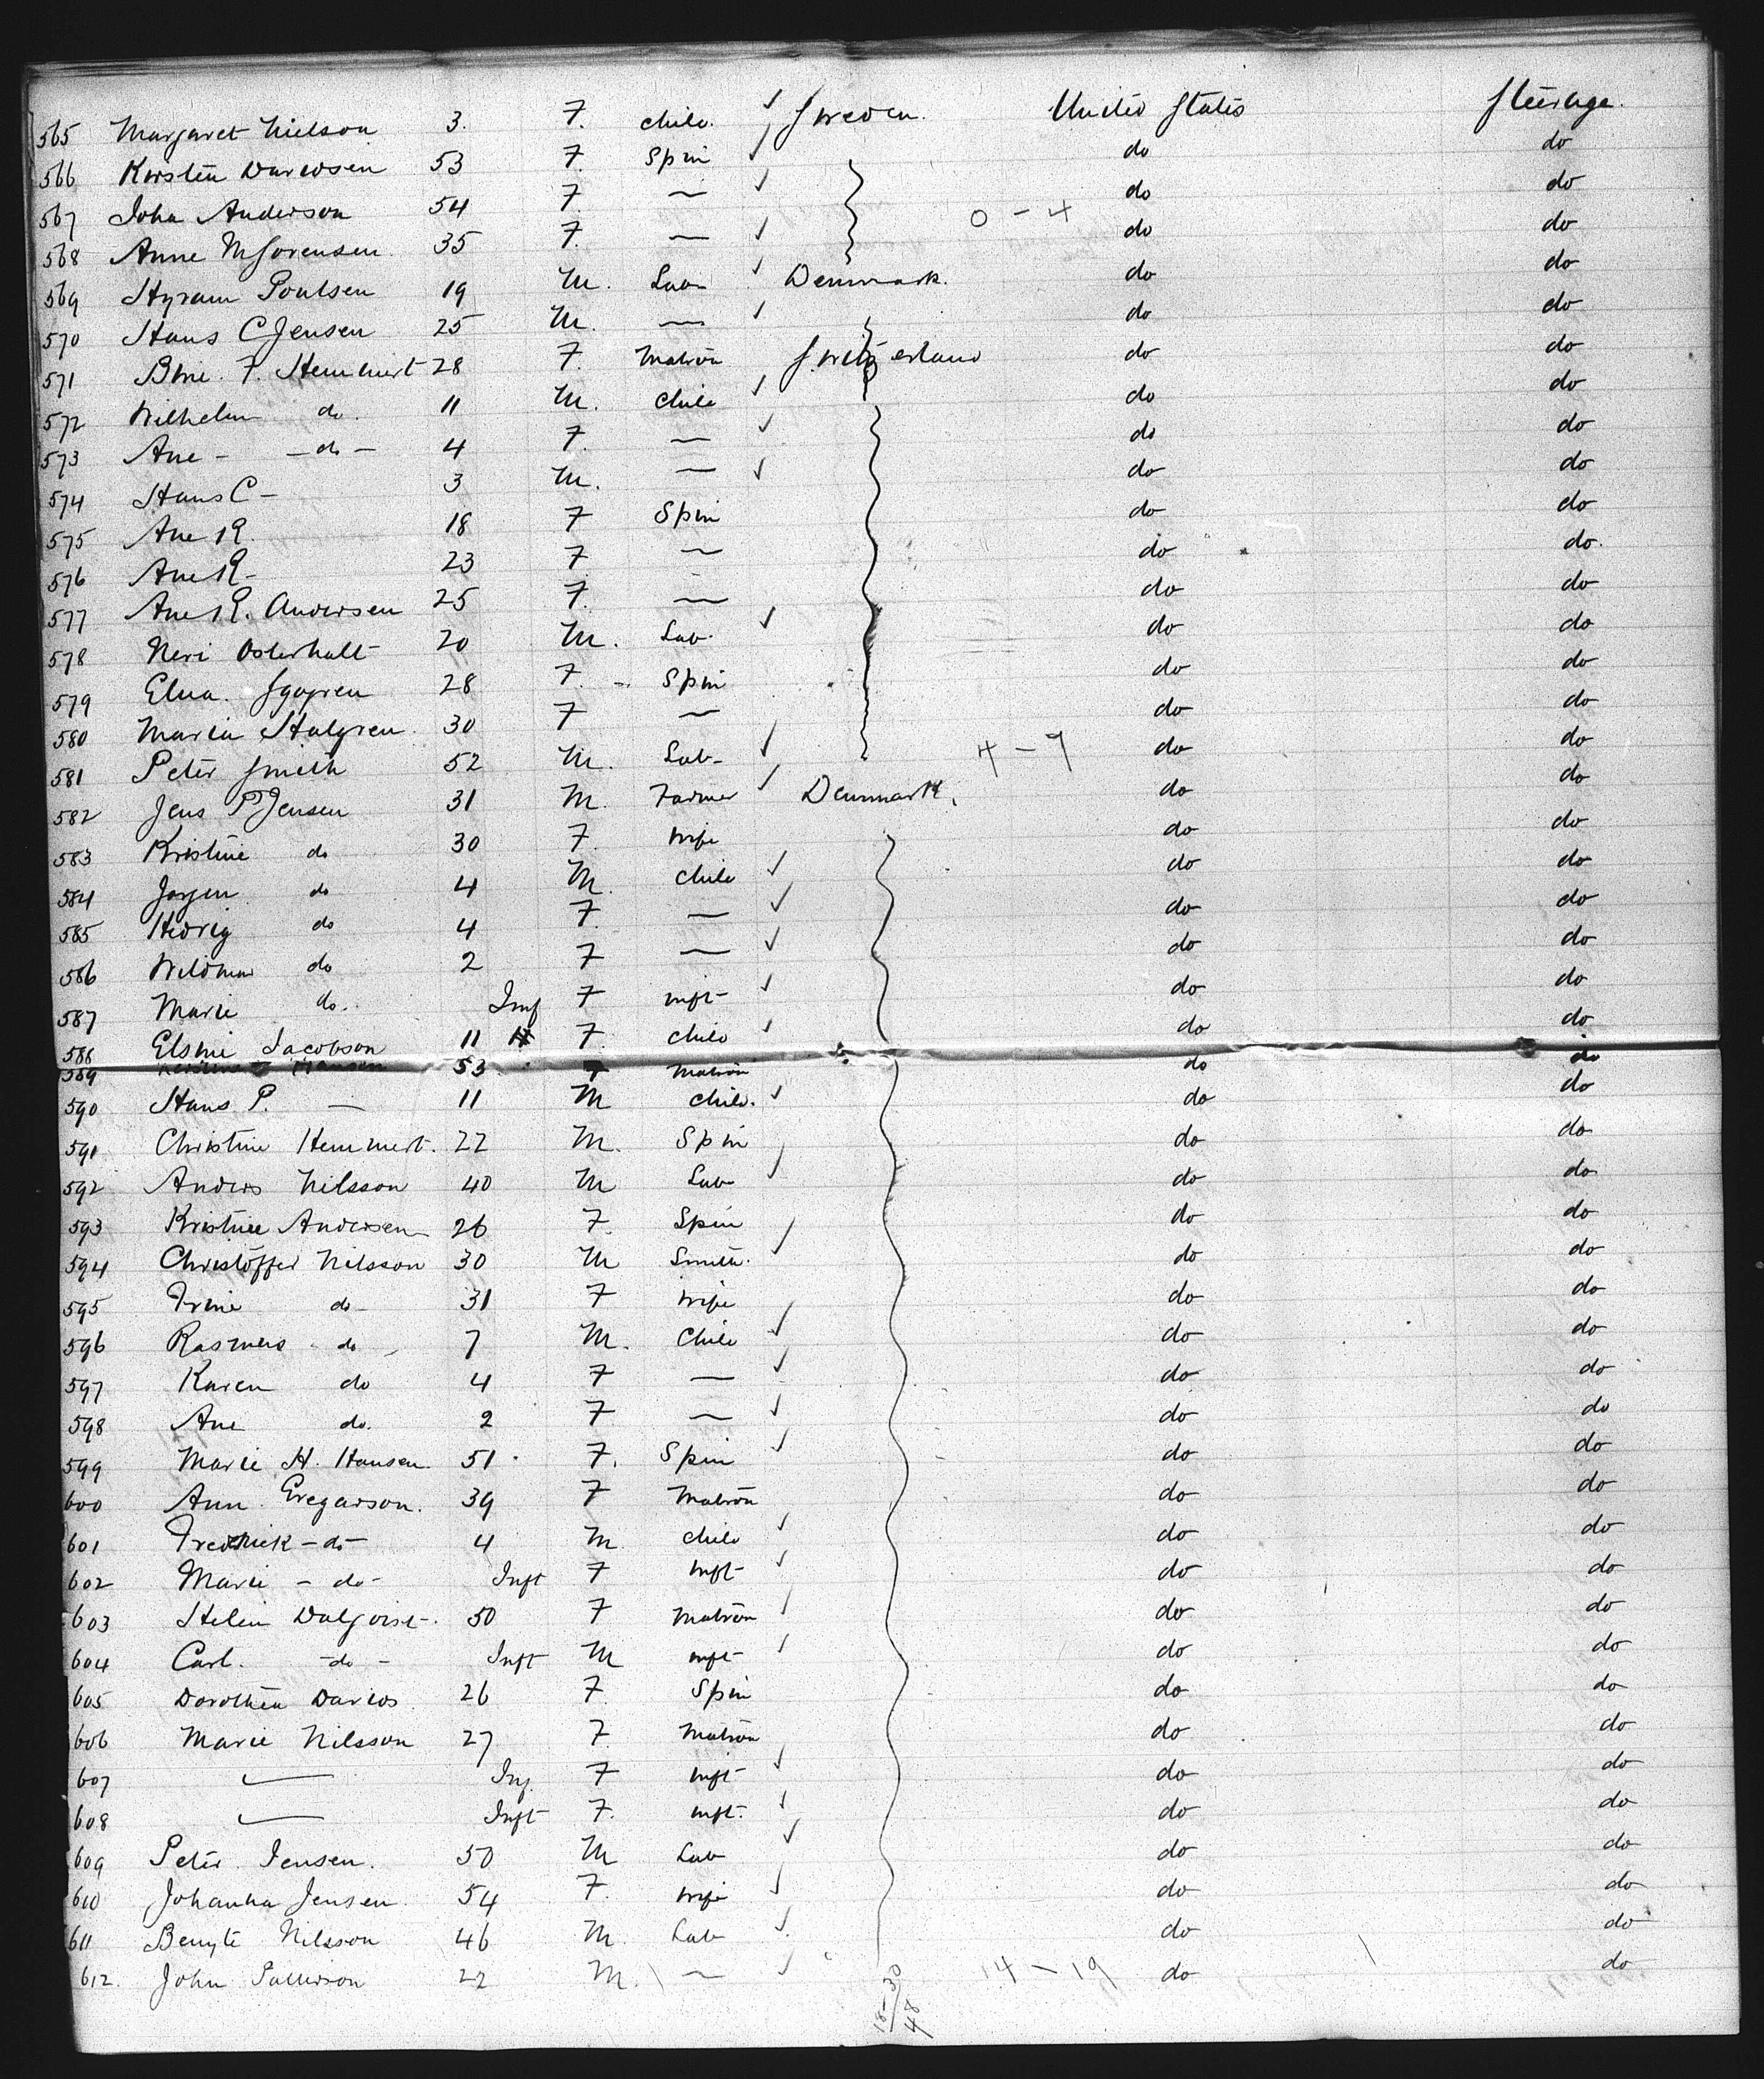 565 Margaret Nielson 3. F. Child. ✓ Sweden. United States Steerage.
566 Kirstin Davidsen 53 F. Spin ✓ do do
567 Joha Anderson 54 F. — ✓ do do
568 Anne M Sorensen. 35 F. — ✓ 0 - 4 do do
569 Hyram Poulsen 19 M. Lab ✓ Denmark. do do
570 Hans C Jensen 25 M. — ✓ do do
571 F. Hemmert 28 F. Matron Switzerland do do
572 Wilhelm do. 11 M. Child ✓ do do
573 Ane - - do - 4 F. — ✓ do do
574 Hans C - 3 M. — ✓ do do
575 Ane K. 18 F Spin do do
576 Ane K - 23 F — do do.
577 Ane K. Andersen 25 F. — do do
578 Neri Osterhalt 20 M. Lab. ✓ do do
579 Elna. 28 F. Spin do do
580 Maria Stalgren. 30 F — do do
581 Peter Smith 52 M. Lab - ✓ 4 - 9 do do
582 Jens P Jensen 31 M. Farmer ✓ Denmark. do do
583 Kristine do 30 F. Wife do do
584 Jorgen do 4 M. Child ✓ do do
585 Hedvig do 4 F. — ✓ do do
586 do 2 F — ✓ do do
587 Marie do.. Inf F inft - ✓ do do
588 Elsine Jacobson 11 F. Child ✓ do do
589 Hansen 53 F Matron do do
590 Hans P. — 11 M Child. ✓ do do
591 Christine Hemmert. 22 M. Spin do do
592 Andres Nilsson 40 M Lab ✓ do do
593 Kristine Andersen 26 F. Spin do do
594 Christoffer Nilsson 30 M Smith. ✓ do do
595 Trine do - 31 F Wife do do
596 Rasmus do 7 M. Child ✓ do do
597 Karen do 4 F — ✓ do do
598 Ane do. 2 F — ✓ do do
599 Marie H. Hansen. 51 F. Spin ✓ do do
600 Ann Gregarson. 39 F Matron do do
601 Fredrick - do - 4 M. Child ✓ do do
602 Marie - do - Inft F inft - ✓ do do
603 Helein 50 F Matron do do
604 Carl. - do - Inft M inft - ✓ do do
605 Dorothea Davids 26 F. Spin do do
606 Marie Nilsson 27 F. Matron do do
607 — Inf. F inft - ✓ do do
608 — Inft F. inft. ✓ do do
609 Peter Jensen. 50 M Lab ✓ do do
610 Johanna Jensen. 54 F. Wife ✓ do do
611 Bengte Nilsson 46 M. Lab ✓ do do
612. John 22 M. — ✓ 14 - 19 do do
18-30
48